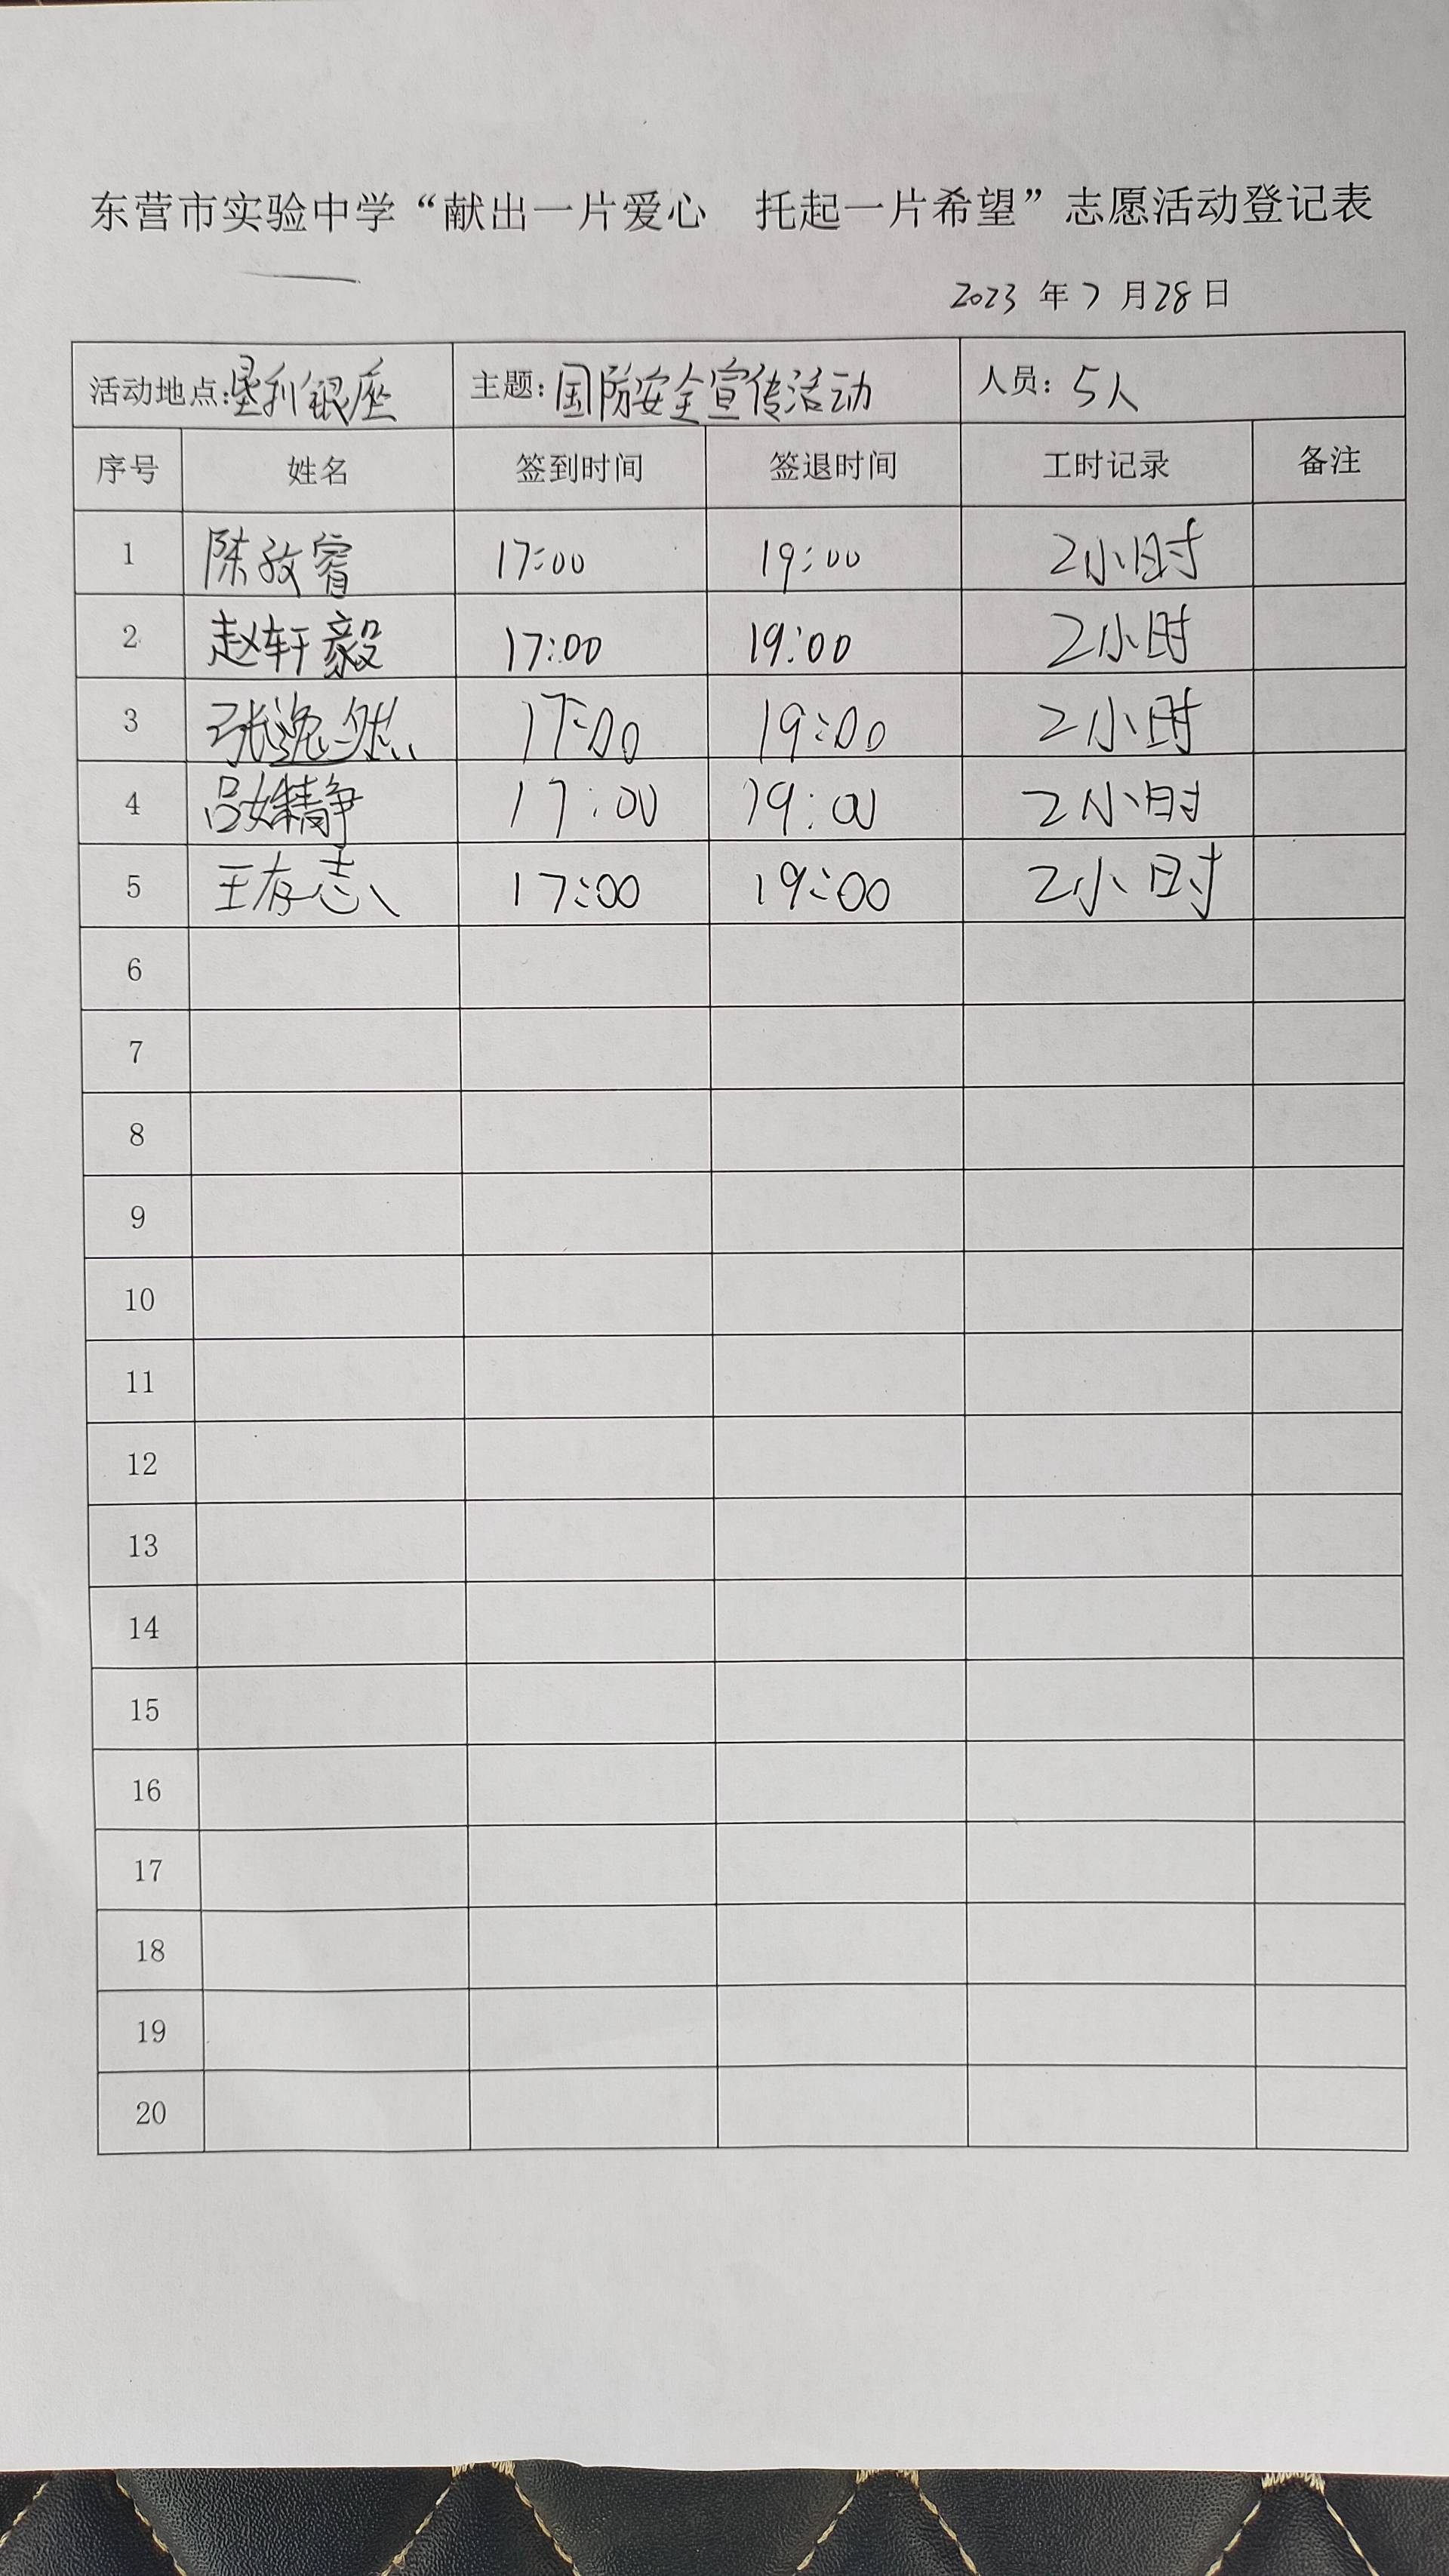 东营市实验中学“献出一片爱心 托起一片希望”志愿活动登记表
2023 年 7 月 28 日
活动地点:垦利银座 主题:国防安全宣传活动 人员:5人
序号 姓名 签到时间 签退时间 工时记录 备注
1 陈孜睿 17:00 19:00 2小时
2 赵轩毅 17:00 19:00 2小时
3 张逸然 17:00 19:00 2小时
4 吕婧静 17:00 19:00 2小时
5 王存志 17:00 19:00 2小时
6
7
8
9
10
11
12
13
14
15
16
17
18
19
20